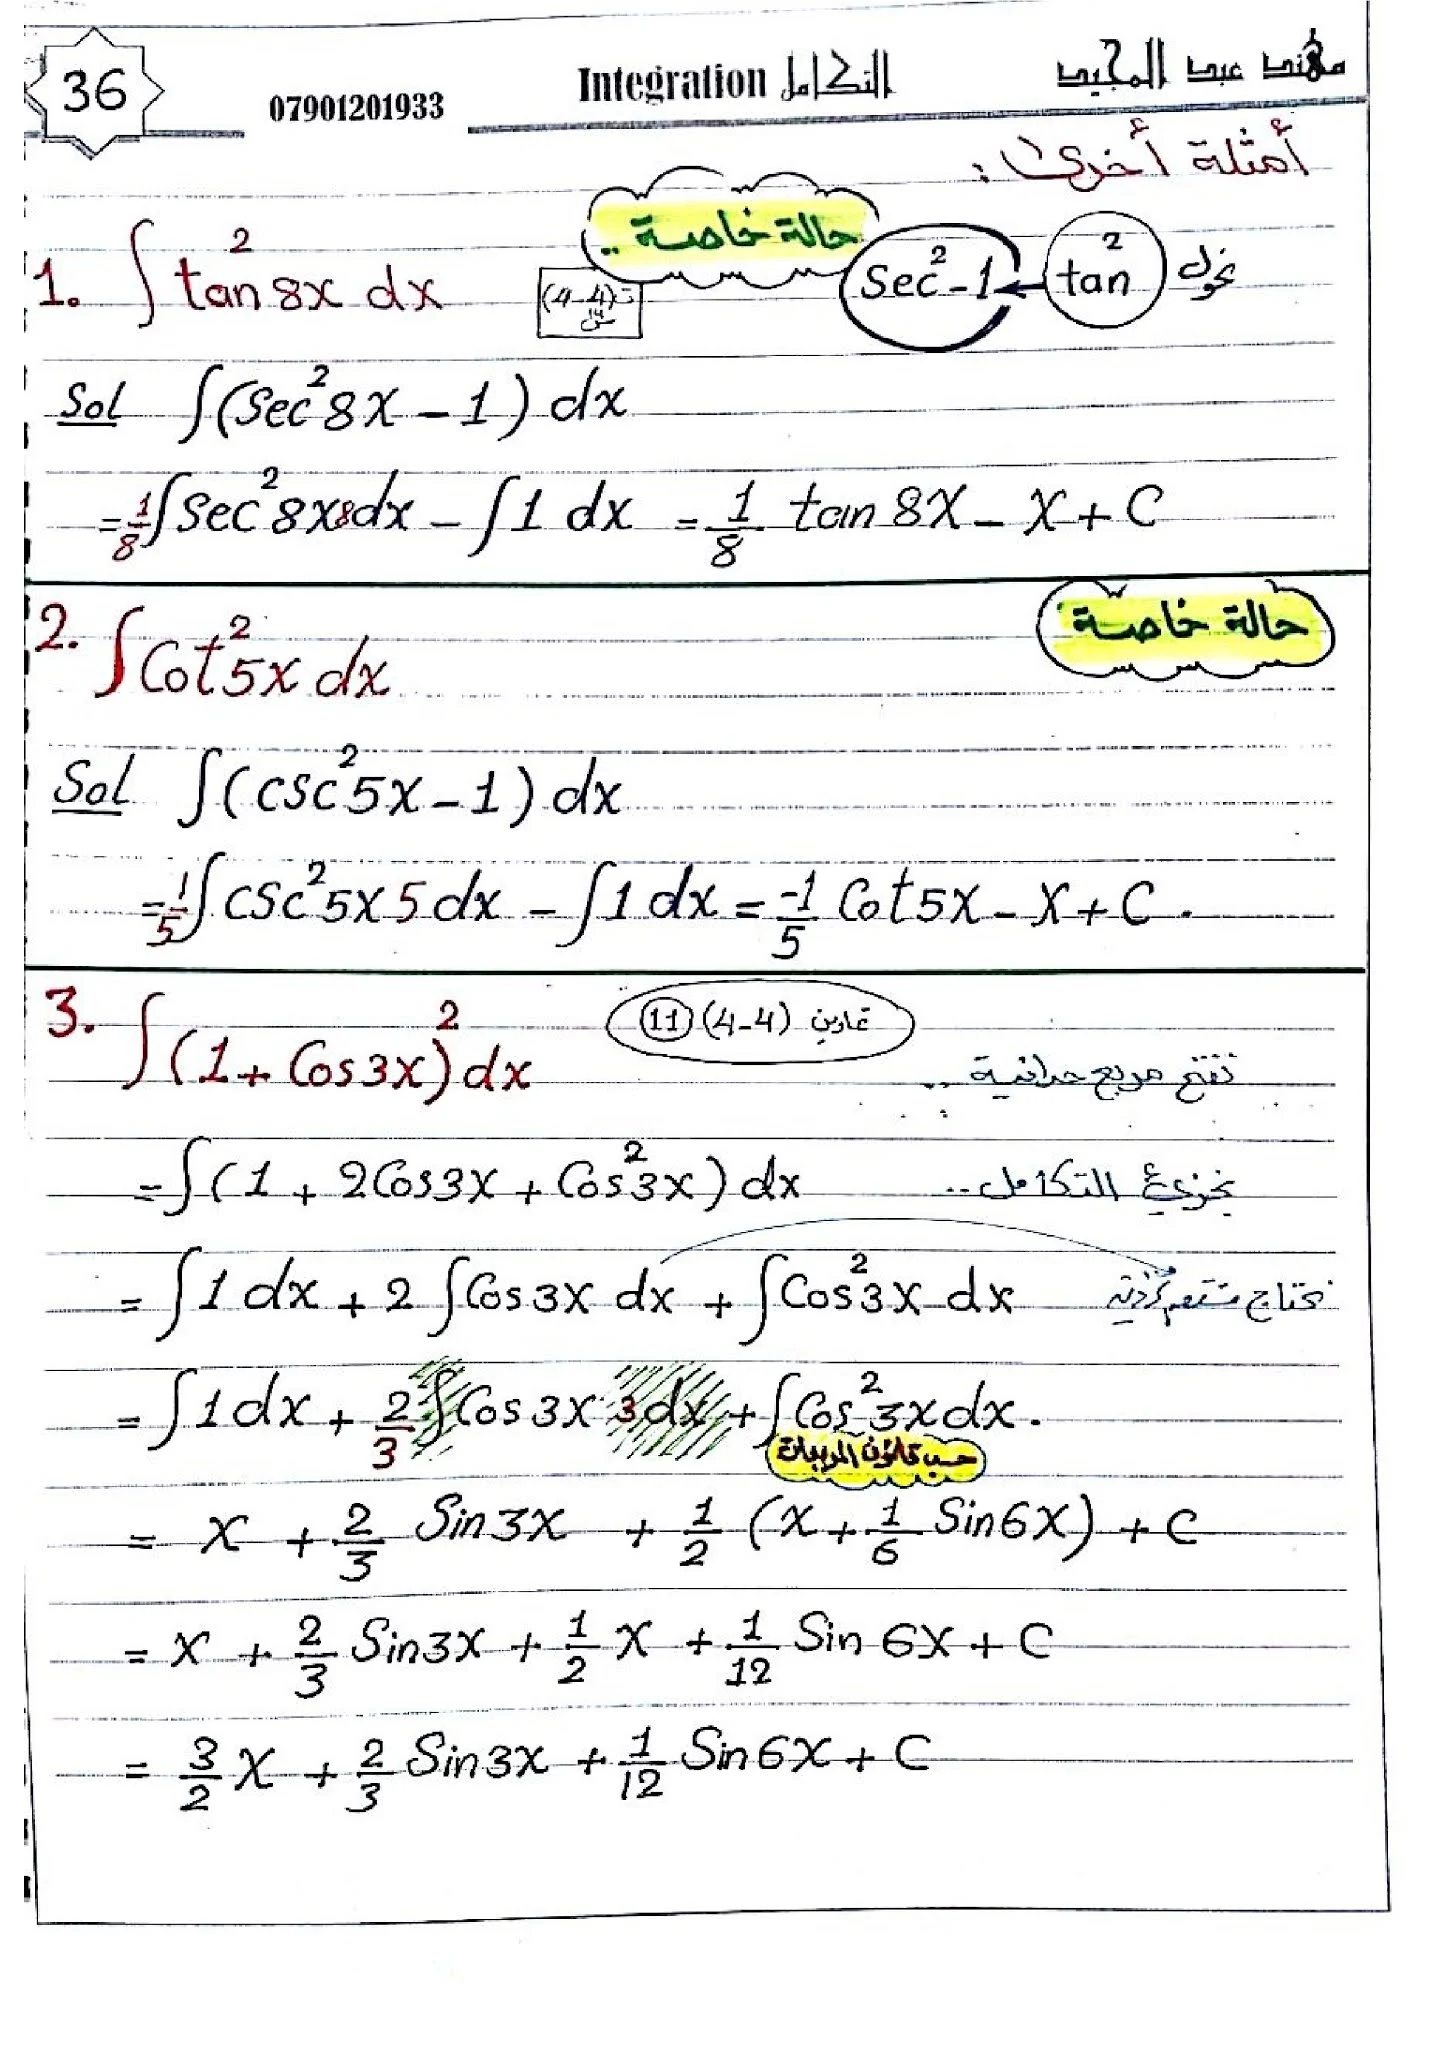 36
07901201933
Integration التكامل
مهند عبد المجيد
أمثلة أخرى :
حالة خاصة ..
1. ∫ tan² 8x dx
ت (4-4) س 14
نحول tan² ← Sec² - 1
Sol ∫(Sec² 8x - 1) dx
= 1/8 ∫ Sec² 8x 8dx - ∫ 1 dx = 1/8 tan 8x - x + C
2. ∫ Cot² 5x dx
حالة خاصة
Sol ∫(csc² 5x - 1) dx
= 1/5 ∫ csc² 5x 5 dx - ∫ 1 dx = -1/5 Cot 5x - x + C .
3. ∫ (1 + Cos 3x)² dx
تمارين (4-4) 11
نفتح مربع حدانية ..
= ∫ (1 + 2 Cos 3x + Cos² 3x) dx
نجزئ التكامل ..
= ∫ 1 dx + 2 ∫ Cos 3x dx + ∫ Cos² 3x dx
نحتاج مشتقة
= ∫ 1 dx + 2/3 ∫ Cos 3x 3 dx + ∫ Cos² 3x dx .
حسب قانون
= x + 2/3 Sin 3x + 1/2 (x + 1/6 Sin 6x) + C
= x + 2/3 Sin 3x + 1/2 x + 1/12 Sin 6x + C
= 3/2 x + 2/3 Sin 3x + 1/12 Sin 6x + C